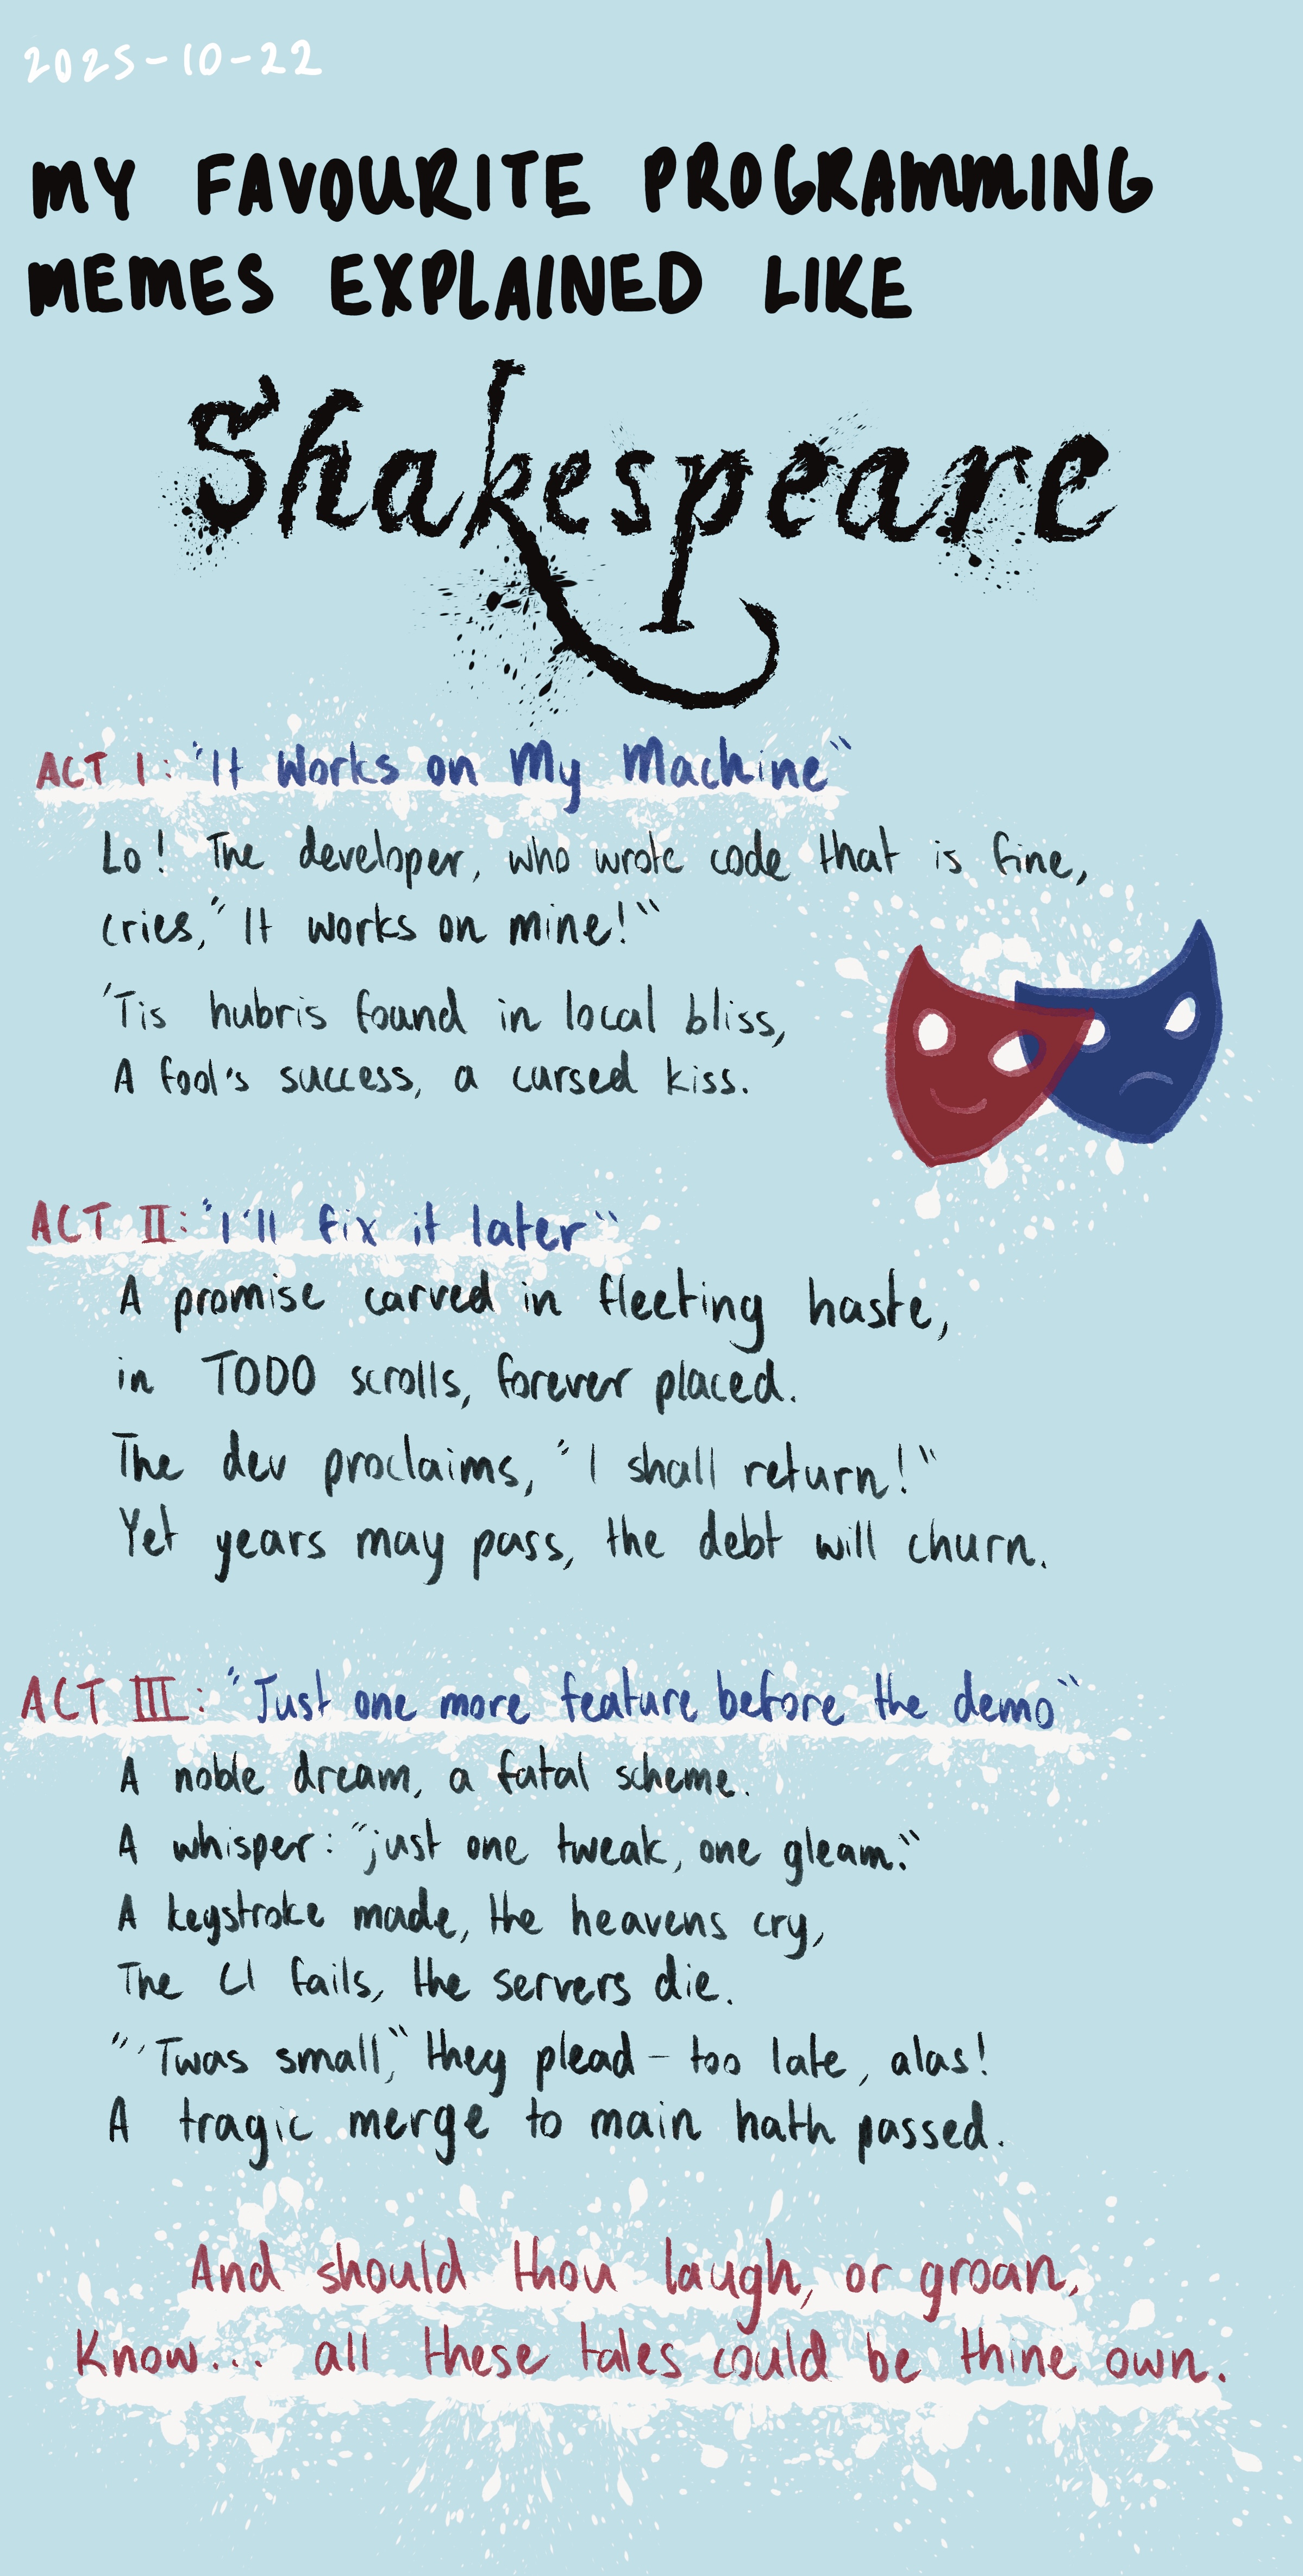 2025-10-22
MY FAVOURITE PROGRAMMING
MEMES EXPLAINED LIKE
Shakespeare
ACT I: "It Works on My Machine"
Lo! The developer, who wrote code that is fine,
cries, "It works on mine!"
'Tis hubris found in local bliss,
A fool's success, a cursed kiss.
ACT II: "I'll fix it later"
A promise carved in fleeting haste,
in TODO scrolls, forever placed.
The dev proclaims, "I shall return!"
Yet years may pass, the debt will churn.
ACT III: "Just one more feature before the demo"
A noble dream, a fatal scheme.
A whisper: "just one tweak, one gleam."
A keystroke made, the heavens cry,
The CI fails, the servers die.
"'Twas small," they plead – too late, alas!
A tragic merge to main hath passed.
And should thou laugh, or groan,
Know... all these tales could be thine own.